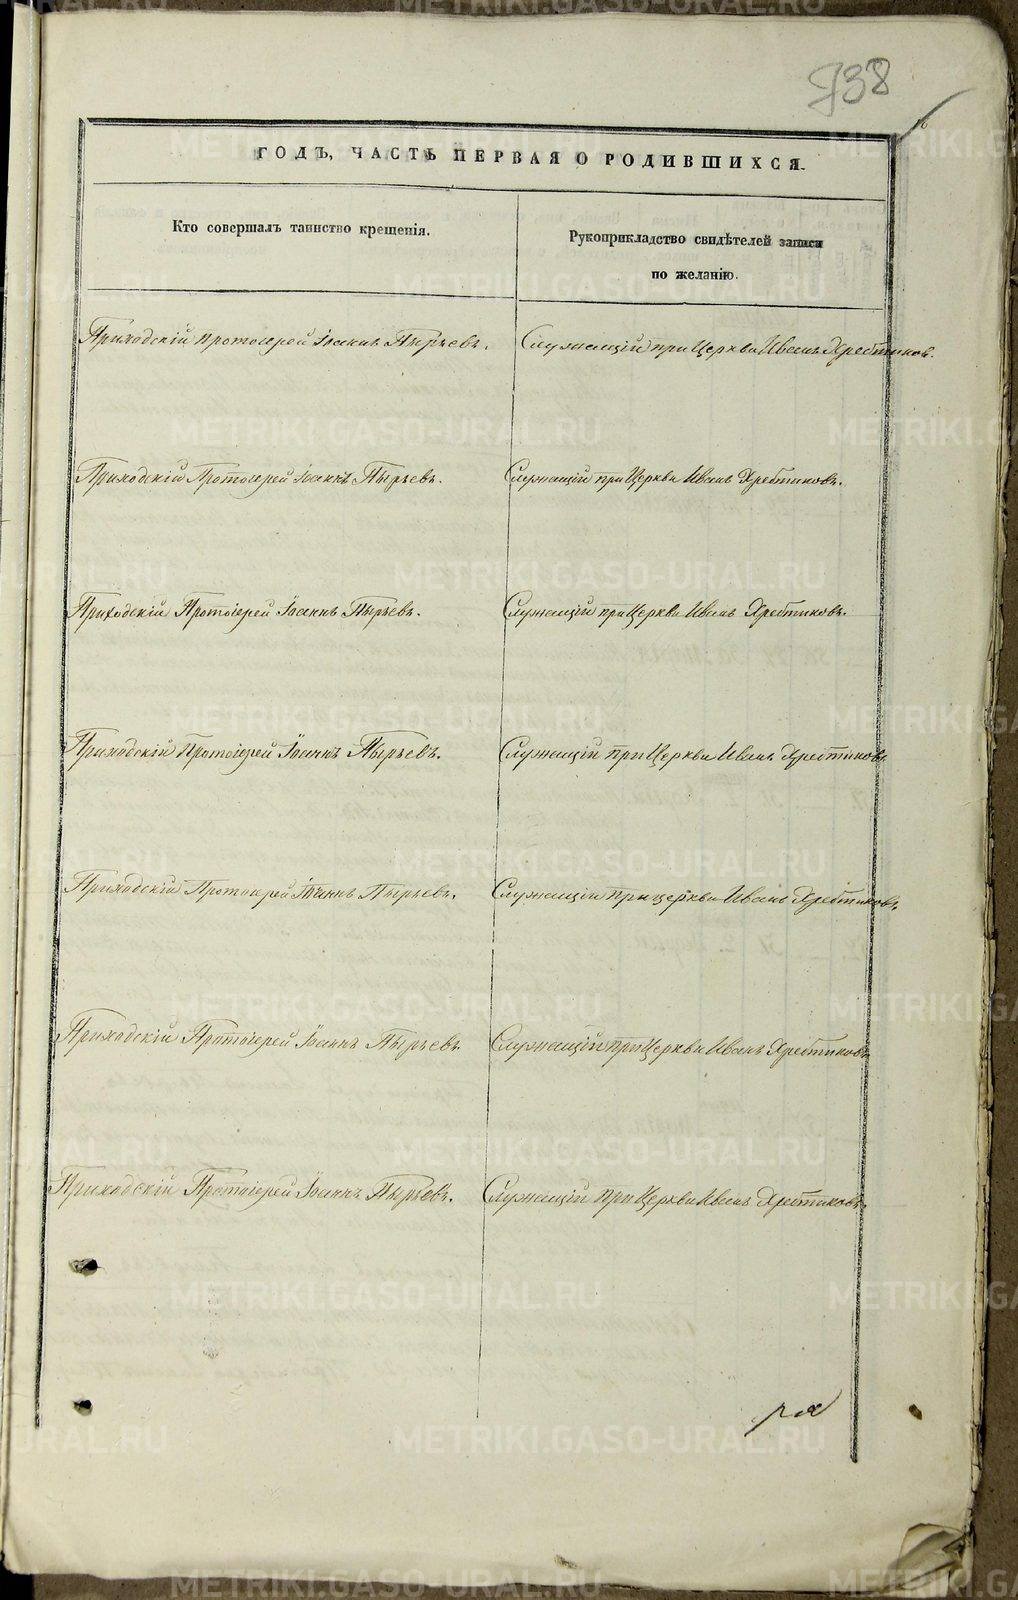 738
ГОДЪ, ЧАСТЬ ПЕРВАЯ О РОДИВШИХСЯ.
Кто совершалъ таинство крещенія.
Рукоприкладство свидѣтелей записи
по желанію.
Приходскій Протоіерей Іоаннъ Пырьевъ. Служащій при Церкви Иванъ Хребтиковъ.
Приходскій Протоіерей Іоаннъ Пырьевъ. Служащій при Церкви Иванъ Хребтиковъ.
Приходскій Протоіерей Іоаннъ Пырьевъ. Служащій при Церкви Иванъ Хребтиковъ.
Приходскій Протоіерей Іоаннъ Пырьевъ. Служащій при Церкви Иванъ Хребтиковъ
Приходскій Протоіерей Іоаннъ Пырьевъ. Служащій при церкви Иванъ Хребтиковъ.
Приходскій Протоіерей Іоаннъ Пырьевъ. Служащій при Церкви Иванъ Хребтиковъ.
Приходскій Протоіерей Іоаннъ Пырьевъ. Служащій при Церкви Иванъ Хребтиковъ.
METRIKI.GASO-URAL.RU